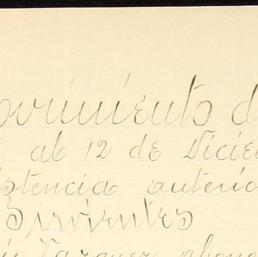 ovimiento d
al 12 de Dicie
istencia anterio
Sirvientes
Vazquez abono